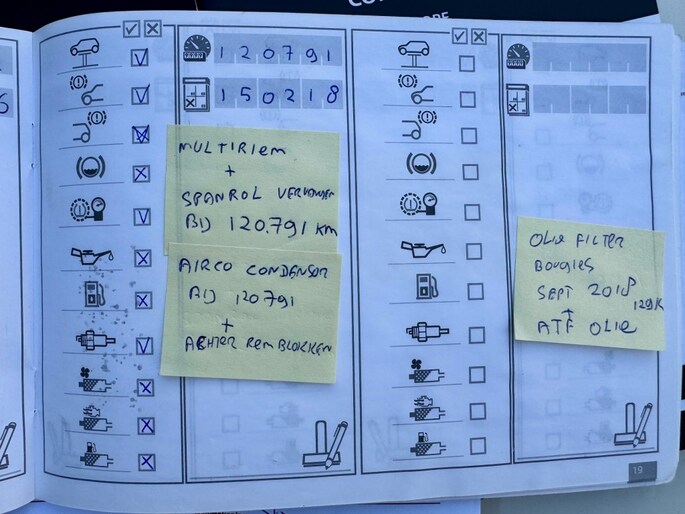 120791
150218
MULTIRIEM
+
SPANROL VERVANGEN
BIJ 120.791 KM
AIRCO CONDENSOR
BIJ 120791
+
ACHTER REMBLOKKEN
OLIE FILTER
BOUGIES
SEPT 2018
129K
ATF OLIE
19